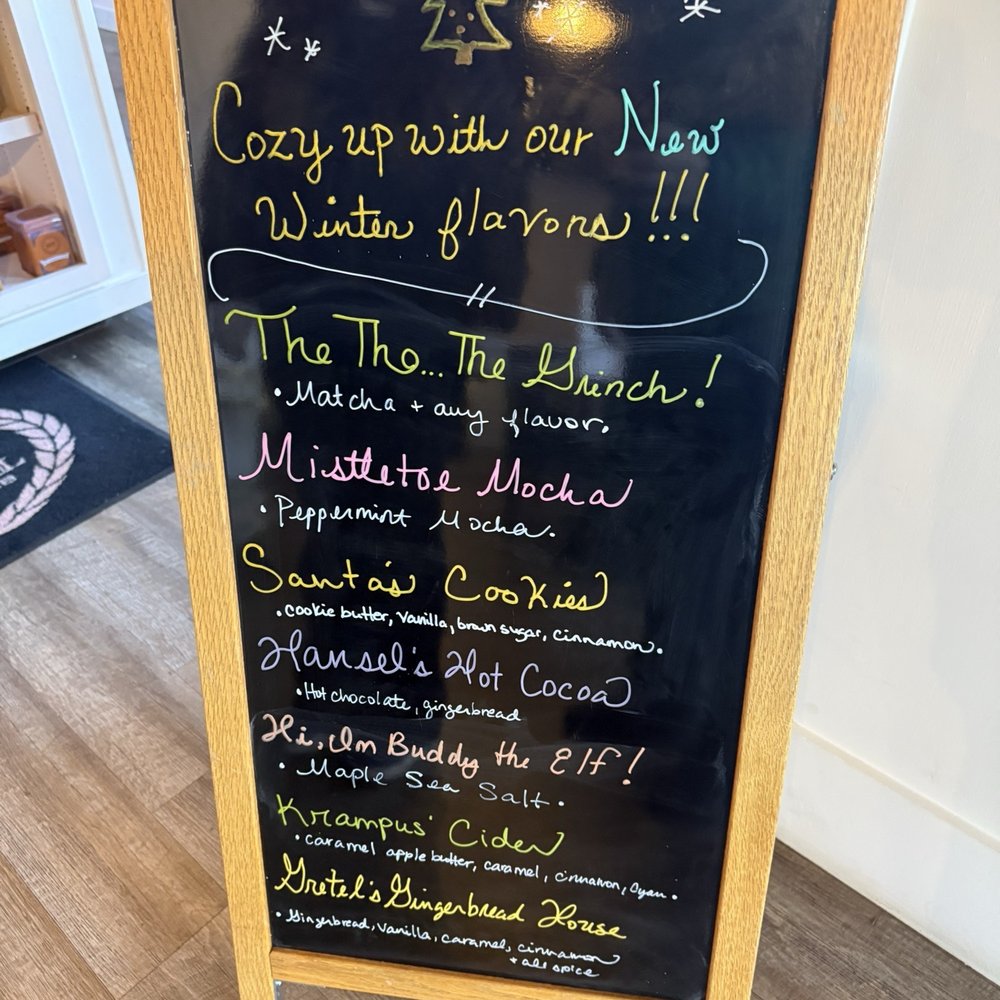 Cozy up with our New
Winter flavors!!!
The The... The Grinch!
• Matcha + any flavor.
Mistletoe Mocha
• Peppermint Mocha.
Santa's Cookies
• cookie butter, vanilla, brown sugar, cinnamon.
Hansel's Hot Cocoa
• Hot chocolate, gingerbread
Hi, Im Buddy the Elf!
• Maple Sea Salt.
Krampus' Cider
• caramel apple butter, caramel, cinnamon, Cyan.
Gretel's Gingerbread House
• Gingerbread, vanilla, caramel, cinnamon
+ all spice